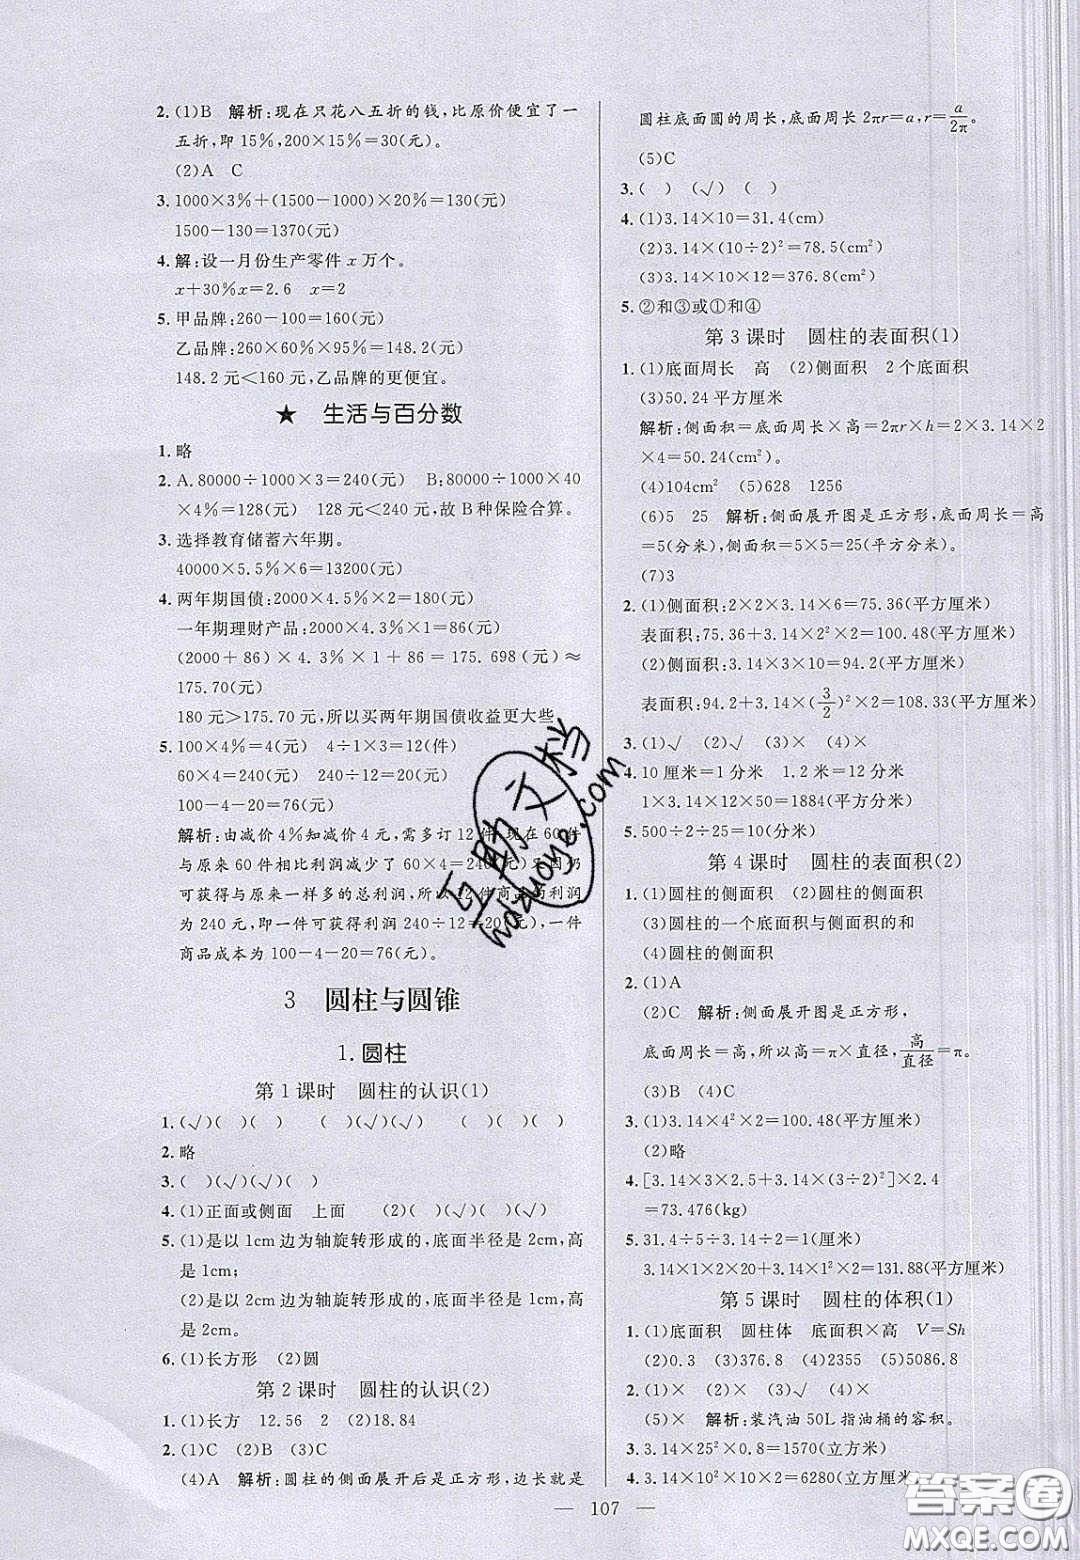 2. (1)B　解析:现在只花八五折的钱,比原价便宜了一
五折,即15%,200×15%=30(元)。
(2)A　C
3. 1000×3%+(1500-1000)×20%=130(元)
1500-130=1370(元)
4. 解:设一月份生产零件x万个。
x+30%x=2.6　x=2
5. 甲品牌:260-100=160(元)
乙品牌:260×60%×95%=148.2(元)
148.2元<160元,乙品牌的更便宜。
★　生活与百分数
1. 略
2. A.80000÷1000×3=240(元)　B:80000÷1000×40
×4%=128(元)　128元<240元,故B种保险合算。
3. 选择教育储蓄六年期。
40000×5.5%×6=13200(元)
4. 两年期国债:2000×4.5%×2=180(元)
一年期理财产品:2000×4.3%×1=86(元)
(2000+86)×4.3%×1+86=175.698(元)≈
175.70(元)
180元>175.70元,所以买两年期国债收益更大些
5. 100×4%=4(元)　4÷1×3=12(件)
60×4=240(元)　240÷12=20(元)
100-4-20=76(元)
解析:由减价4%知减价4元,需多订12件,现在60件
与原来60件相比利润减少了60×4=240(元),又因仍
可获得与原来一样多的总利润,所以12件商品的利润
为240元,即一件可获得利润240÷12=20(元),一件
商品成本为100-4-20=76(元)。
3　圆柱与圆锥
1.圆柱
第1课时　圆柱的认识(1)
1. (√)( )(√)( )　( )(√)(√)( )　( )( )
2. 略
3. ( )(√)(√)(√)( )
4. (1)正面或侧面　上面　(2)( )(√)( )(√)
5. (1)是以1cm边为轴旋转形成的,底面半径是2cm,高
是1cm;
(2)是以2cm边为轴旋转形成的,底面半径是1cm,
高是2cm。
6. (1)长方形　(2)圆
第2课时　圆柱的认识(2)
1. (1)长方　12.56　2　(2)18.84
2. (1)C　(2)B　(3)C
(4)A　解析:圆柱的侧面展开后是正方形,边长就是
圆柱底面圆的周长,底面周长2πr=a,r=a/2π。
(5)C
3. ( )　(√)　( )　( )
4. (1)3.14×10=31.4(cm)
(2)3.14×(10÷2)²=78.5(cm²)
(3)3.14×10×12=376.8(cm²)
5. ②和③或①和④
第3课时　圆柱的表面积(1)
1. (1)底面周长　高　(2)侧面积　2个底面积
(3)50.24平方厘米
解析:侧面积=底面周长×高=2πr×h=2×3.14×2
×4=50.24(cm²)。
(4)104cm²　(5)628　1256
(6)5　25　解析:侧面展开图是正方形,底面周长=高
=5(分米),侧面积=5×5=25(平方分米)。
(7)3
2. (1)侧面积:2×2×3.14×6=75.36(平方厘米)
表面积:75.36+3.14×2²×2=100.48(平方厘米)
(2)侧面积:3.14×3×10=94.2(平方厘米)
表面积:94.2+3.14×(3/2)²×2=108.33(平方厘米)
3. (1)√　(2)√　(3)×　(4)×
4. 10厘米=1分米　1.2米=12分米
1×3.14×12×50=1884(平方分米)
5. 500÷2÷25=10(分米)
第4课时　圆柱的表面积(2)
1. (1)圆柱的侧面积　(2)圆柱的侧面积
(3)圆柱的一个底面积与侧面积的和
(4)圆柱的侧面积
2. (1)A
(2)C　解析:侧面展开图是正方形,
底面周长=高,所以高=π×直径,高/直径=π。
(3)B　(4)C
3. (1)3.14×4²×2=100.48(平方厘米)
(2)略
4. [3.14×3×2.5+3.14×(3÷2)²]×2.4
=73.476(kg)
5. 31.4÷5÷3.14÷2=1(厘米)
3.14×1×2×20+3.14×1²×2=131.88(平方厘米)
第5课时　圆柱的体积(1)
1. (1)底面积　圆柱体　底面积×高　V=Sh
(2)0.3　(3)376.8　(4)2355　(5)5086.8
2. (1)×　(2)×　(3)√　(4)×
(5)×　解析:装汽油50L指油桶的容积。
3. 3.14×25²×0.8=1570(立方米)
4. 3.14×10²×10×2=6280(立方厘米)
— 107 —
互助文档
hdzuoye.com
答案圈
MXQE.COM